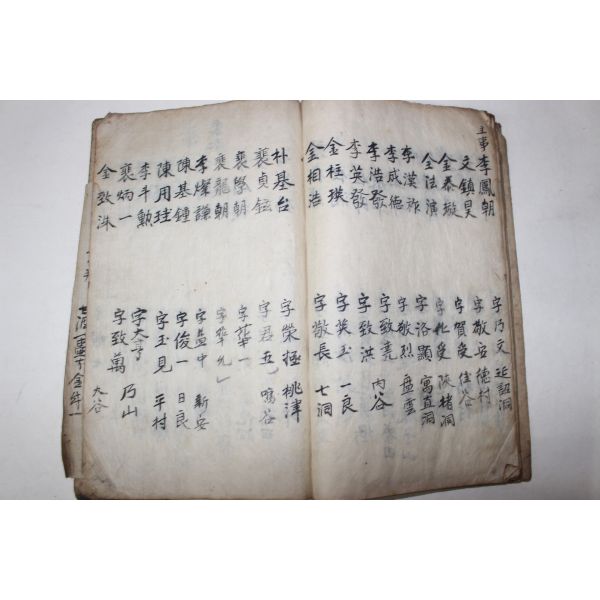 主事 李鳳朝 字乃文 近詔洞
文鎮昊 字敬安 德村
金泰璇 字賀受 佳谷
金法演 字允受 陳楮洞
李漢祚 字洛顯 寓直洞
李成德 字敬烈 盘雲
李浩發 字致堯 內谷
李英發 字致洪
金柱瑛 字英玉 一良
金相浩 字敬長 七洞
朴基台 字榮極 桃津
裵貞鉉 字君五 鳴谷
裵馨朝 字華一
裵龍朝 字華允
李燦謙 字益中 新安
陳基鍾 字俊一 日良
陳用珪 字玉見 平村
李斗勳 字大亨
裵炳一 字致萬 乃山
金致洙 大谷